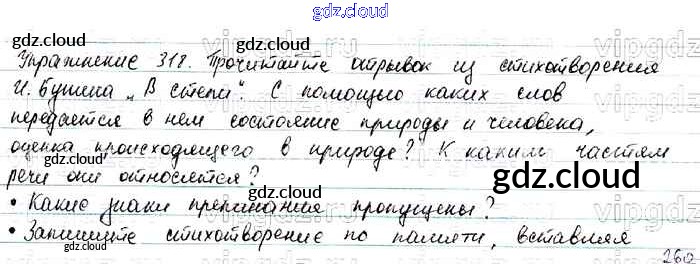 gdz.cloud
gdz.cloud
gdz.cloud
Упражнение 318. Прочитайте отрывок из стихотворения
И. Бунина „В степи". С помощью каких слов
gdz.cloud
передается в нем состояние природы и человека,
оценка происходящего в природе? К каким частям
gdz.cloud
речи они относятся?
gdz.cloud
• Какие знаки препинания пропущены?
• Запишите стихотворение по памяти, вставляя
gdz.cloud
gdz.cloud